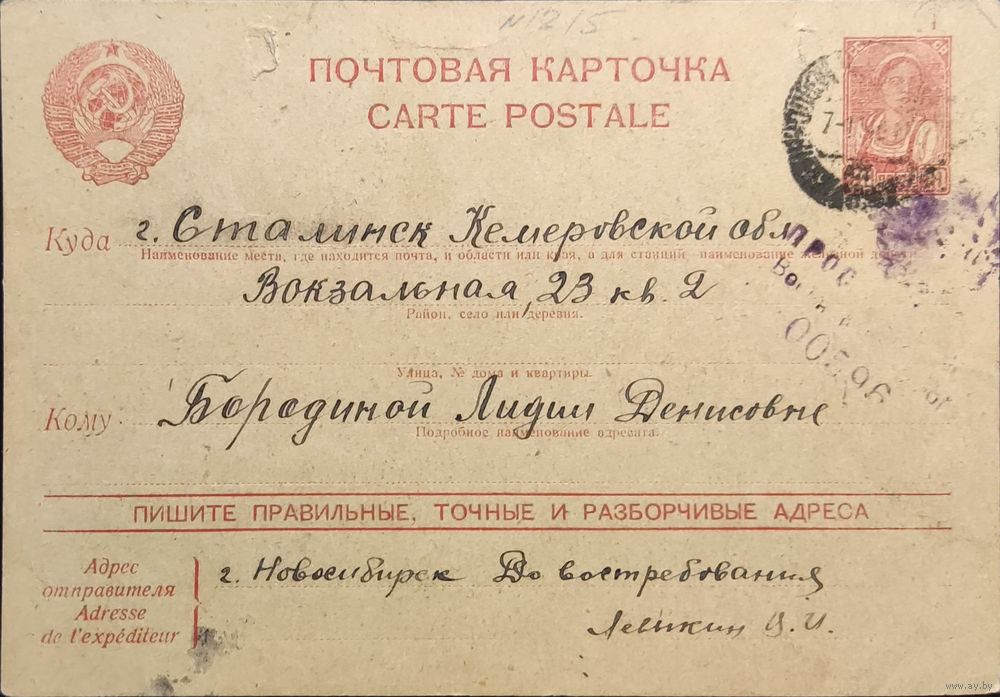 N1215
ПОЧТОВАЯ КАРТОЧКА
CARTE POSTALE
Куда г. Сталинск Кемеровской обл
Наименование места, где находится почта, и области или края, а для станций наименование железной дороги
Вокзальная, 23 кв. 2
Район, село или деревня.
Улица, № дома и квартиры.
00596
Кому Бородиной Лидии Денисовне
Подробное наименование адресата.
ПИШИТЕ ПРАВИЛЬНЫЕ, ТОЧНЫЕ И РАЗБОРЧИВЫЕ АДРЕСА
Адрес
отправителя
Adresse
de l'expéditeur
г. Новосибирск До востребования
Левикин И.И.
www.ay.by